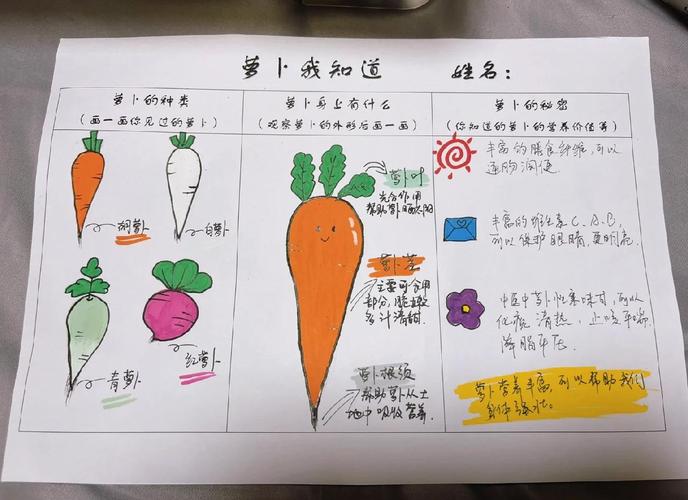 萝卜我知道 姓名:
萝卜的种类
(画一画你见过的萝卜)
胡萝卜
白萝卜
青萝卜
红萝卜
萝卜身上有什么
(观察萝卜的外形后画一画)
萝卜叶
光合作用
帮助萝卜晒太阳
萝卜茎
主要可食用
部分,脆嫩
多汁清甜.
萝卜根须
帮助萝卜从土
地中吸收营养
萝卜的秘密
(你知道的萝卜的营养价值等)
丰富的膳食纤维,可以
通肠润便.
丰富的维生素C、A、B,
可以保护眼睛,更明亮.
中医中萝卜性寒味甘,可以
化痰清热,止咳平喘.
降脂平压.
萝卜营养丰富,可以帮助我们
身体强壮。